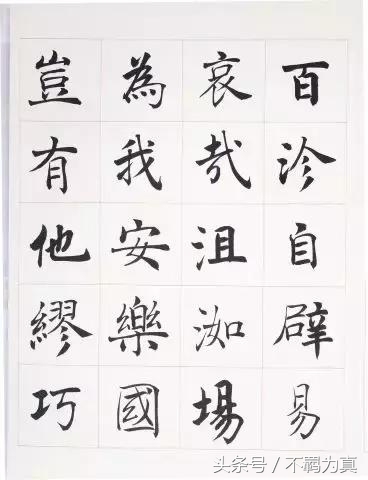 百沴自辟易
哀哉沮洳場
為我安樂國
豈有他繆巧
头条号 / 不羁为真